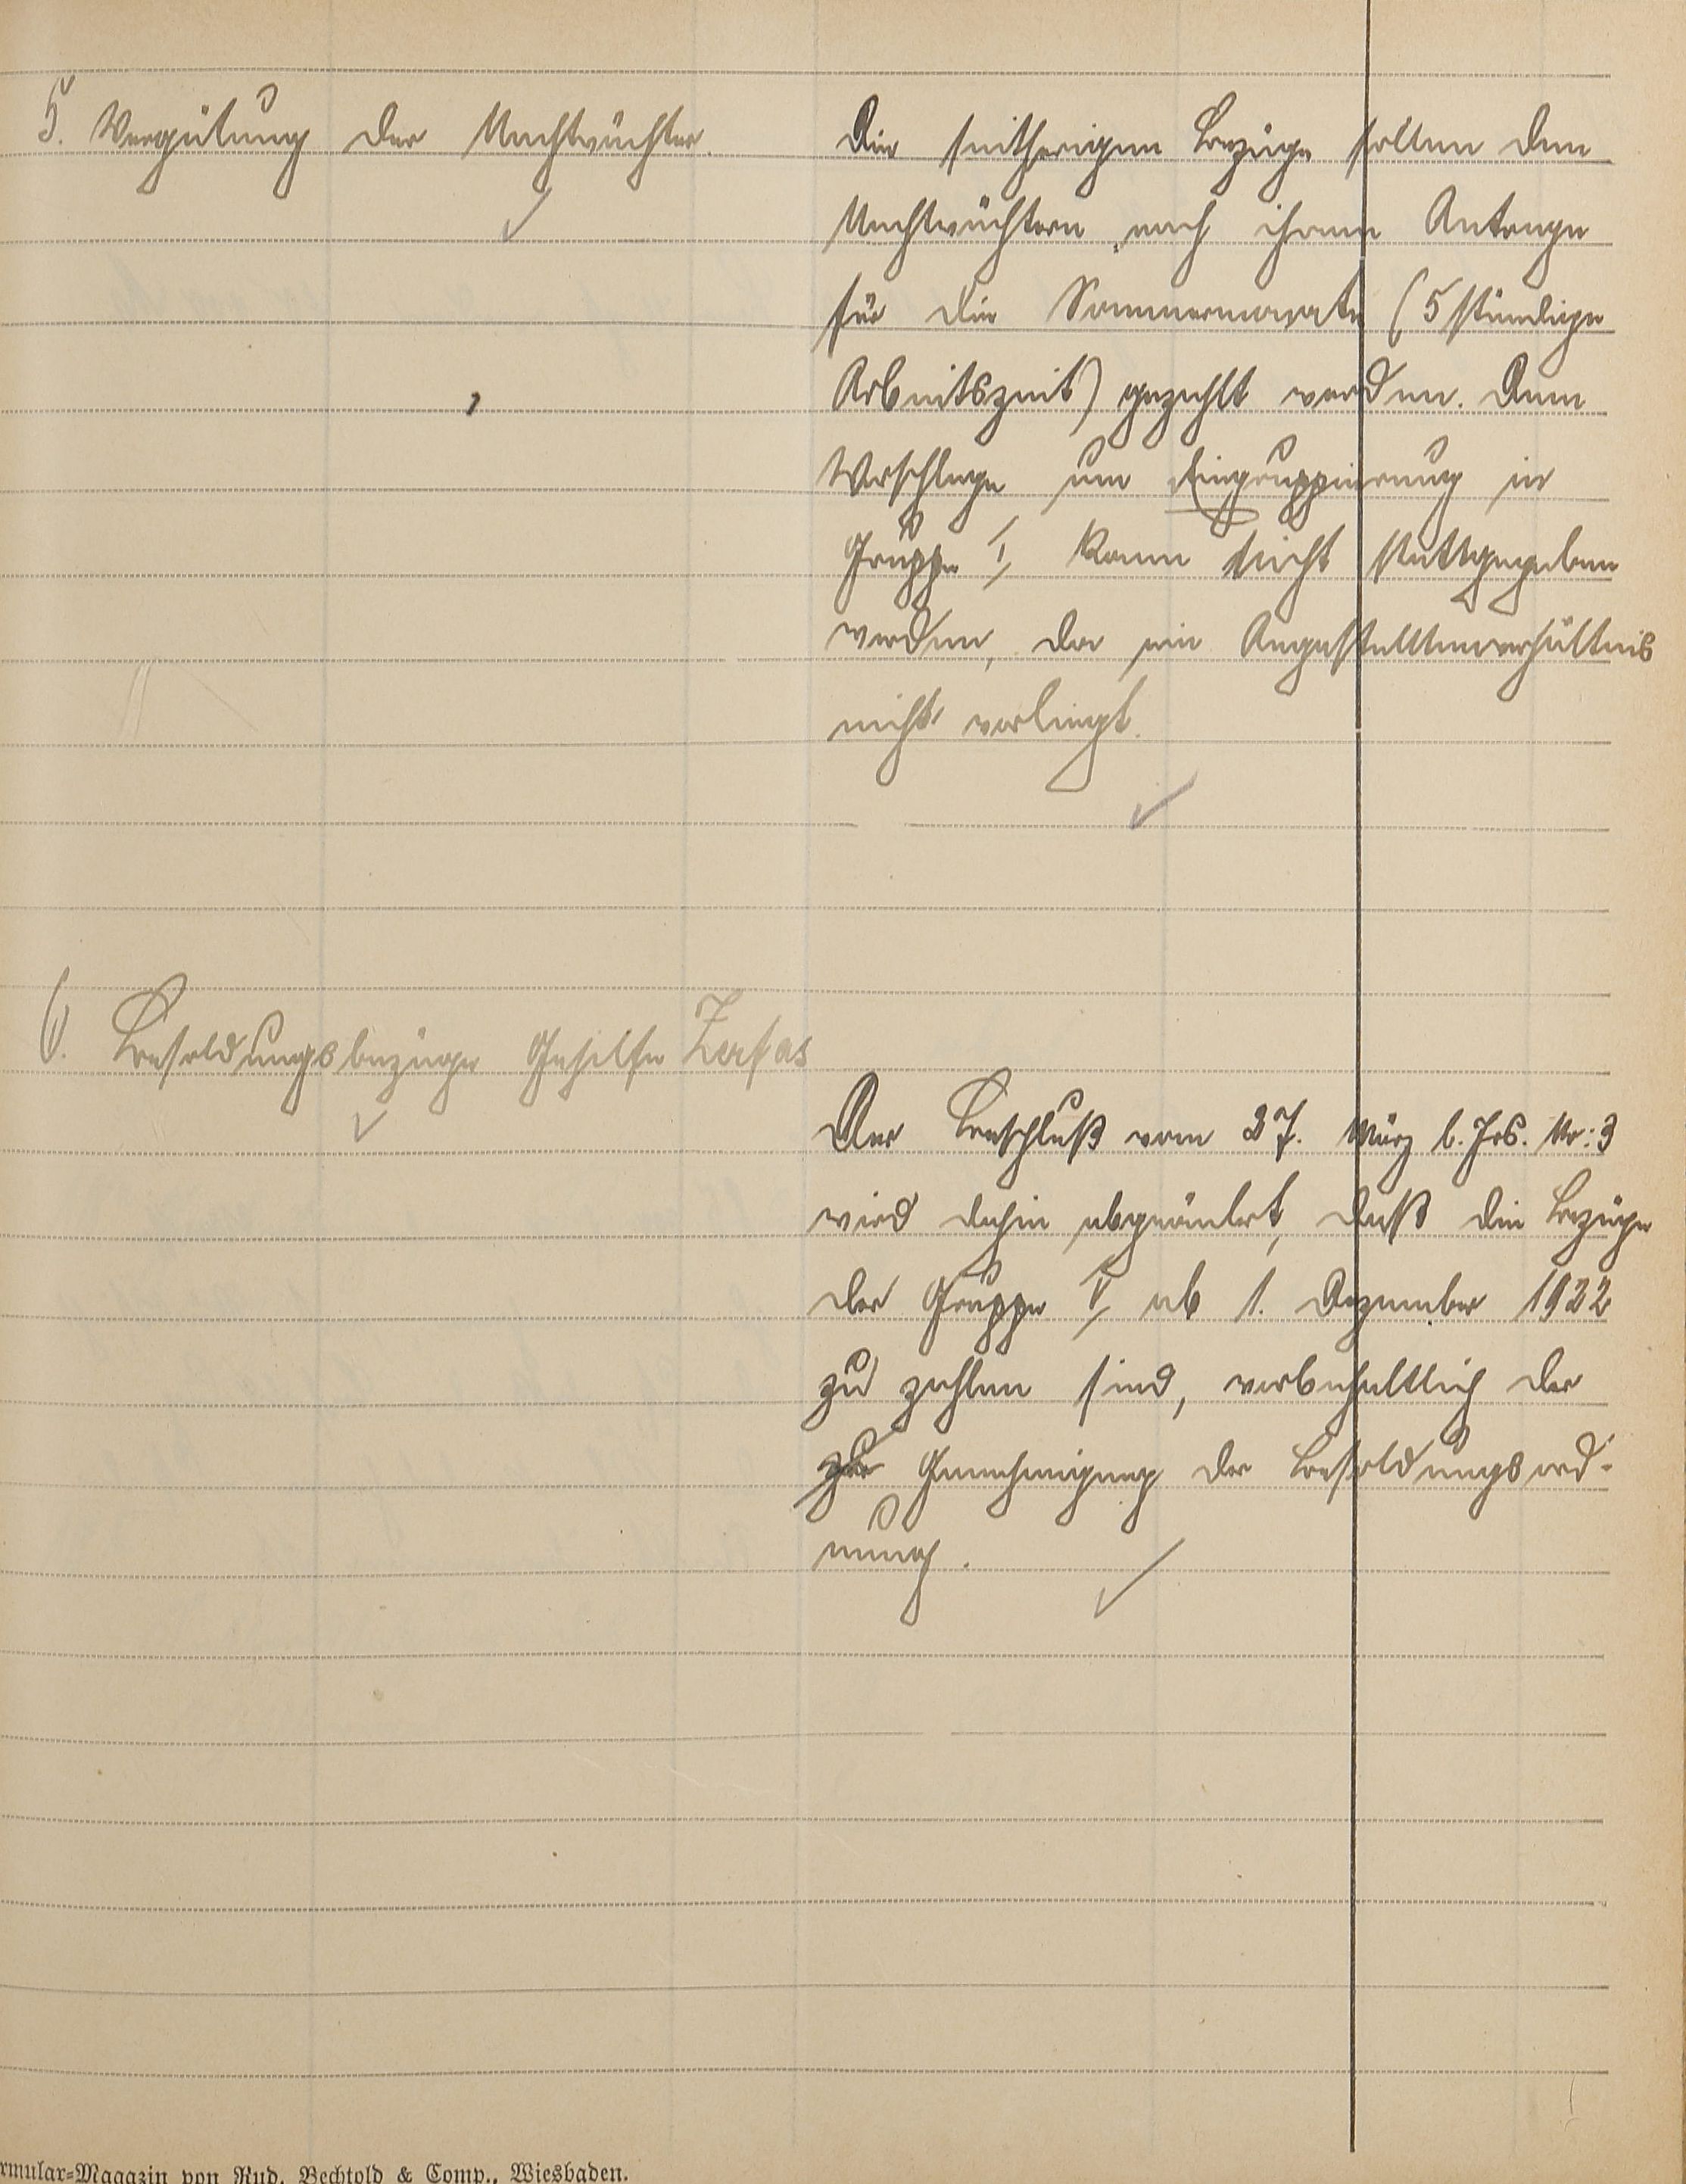 5. Vergütung der Nachtwächter.
Die seitherigen Bezüge sollen den
Nachtwächtern nach ihrem Antrage
für die Sommermonate (5 stündige
Arbeitszeit) gezahlt werden. Dem
Vorschlage um Eingruppierung in
Gruppe I, kann nicht stattgegeben
werden, da ein Angestelltenverhältnis
nicht vorliegt.
6. Besoldungsbezüge Gehilfe Zerfas
Der Beschluß vom 27. März l. Jrs. Nr: 3
wird dahin abgeändert, daß die Bezüge
der Gruppe V, ab 1. Dezember 1922
zu zahlen sind, vorbehaltlich der
zur Genehmigung der Besoldungsord-
nung.
rmular=Magazin von Rud. Bechtold & Comp., Wiesbaden.